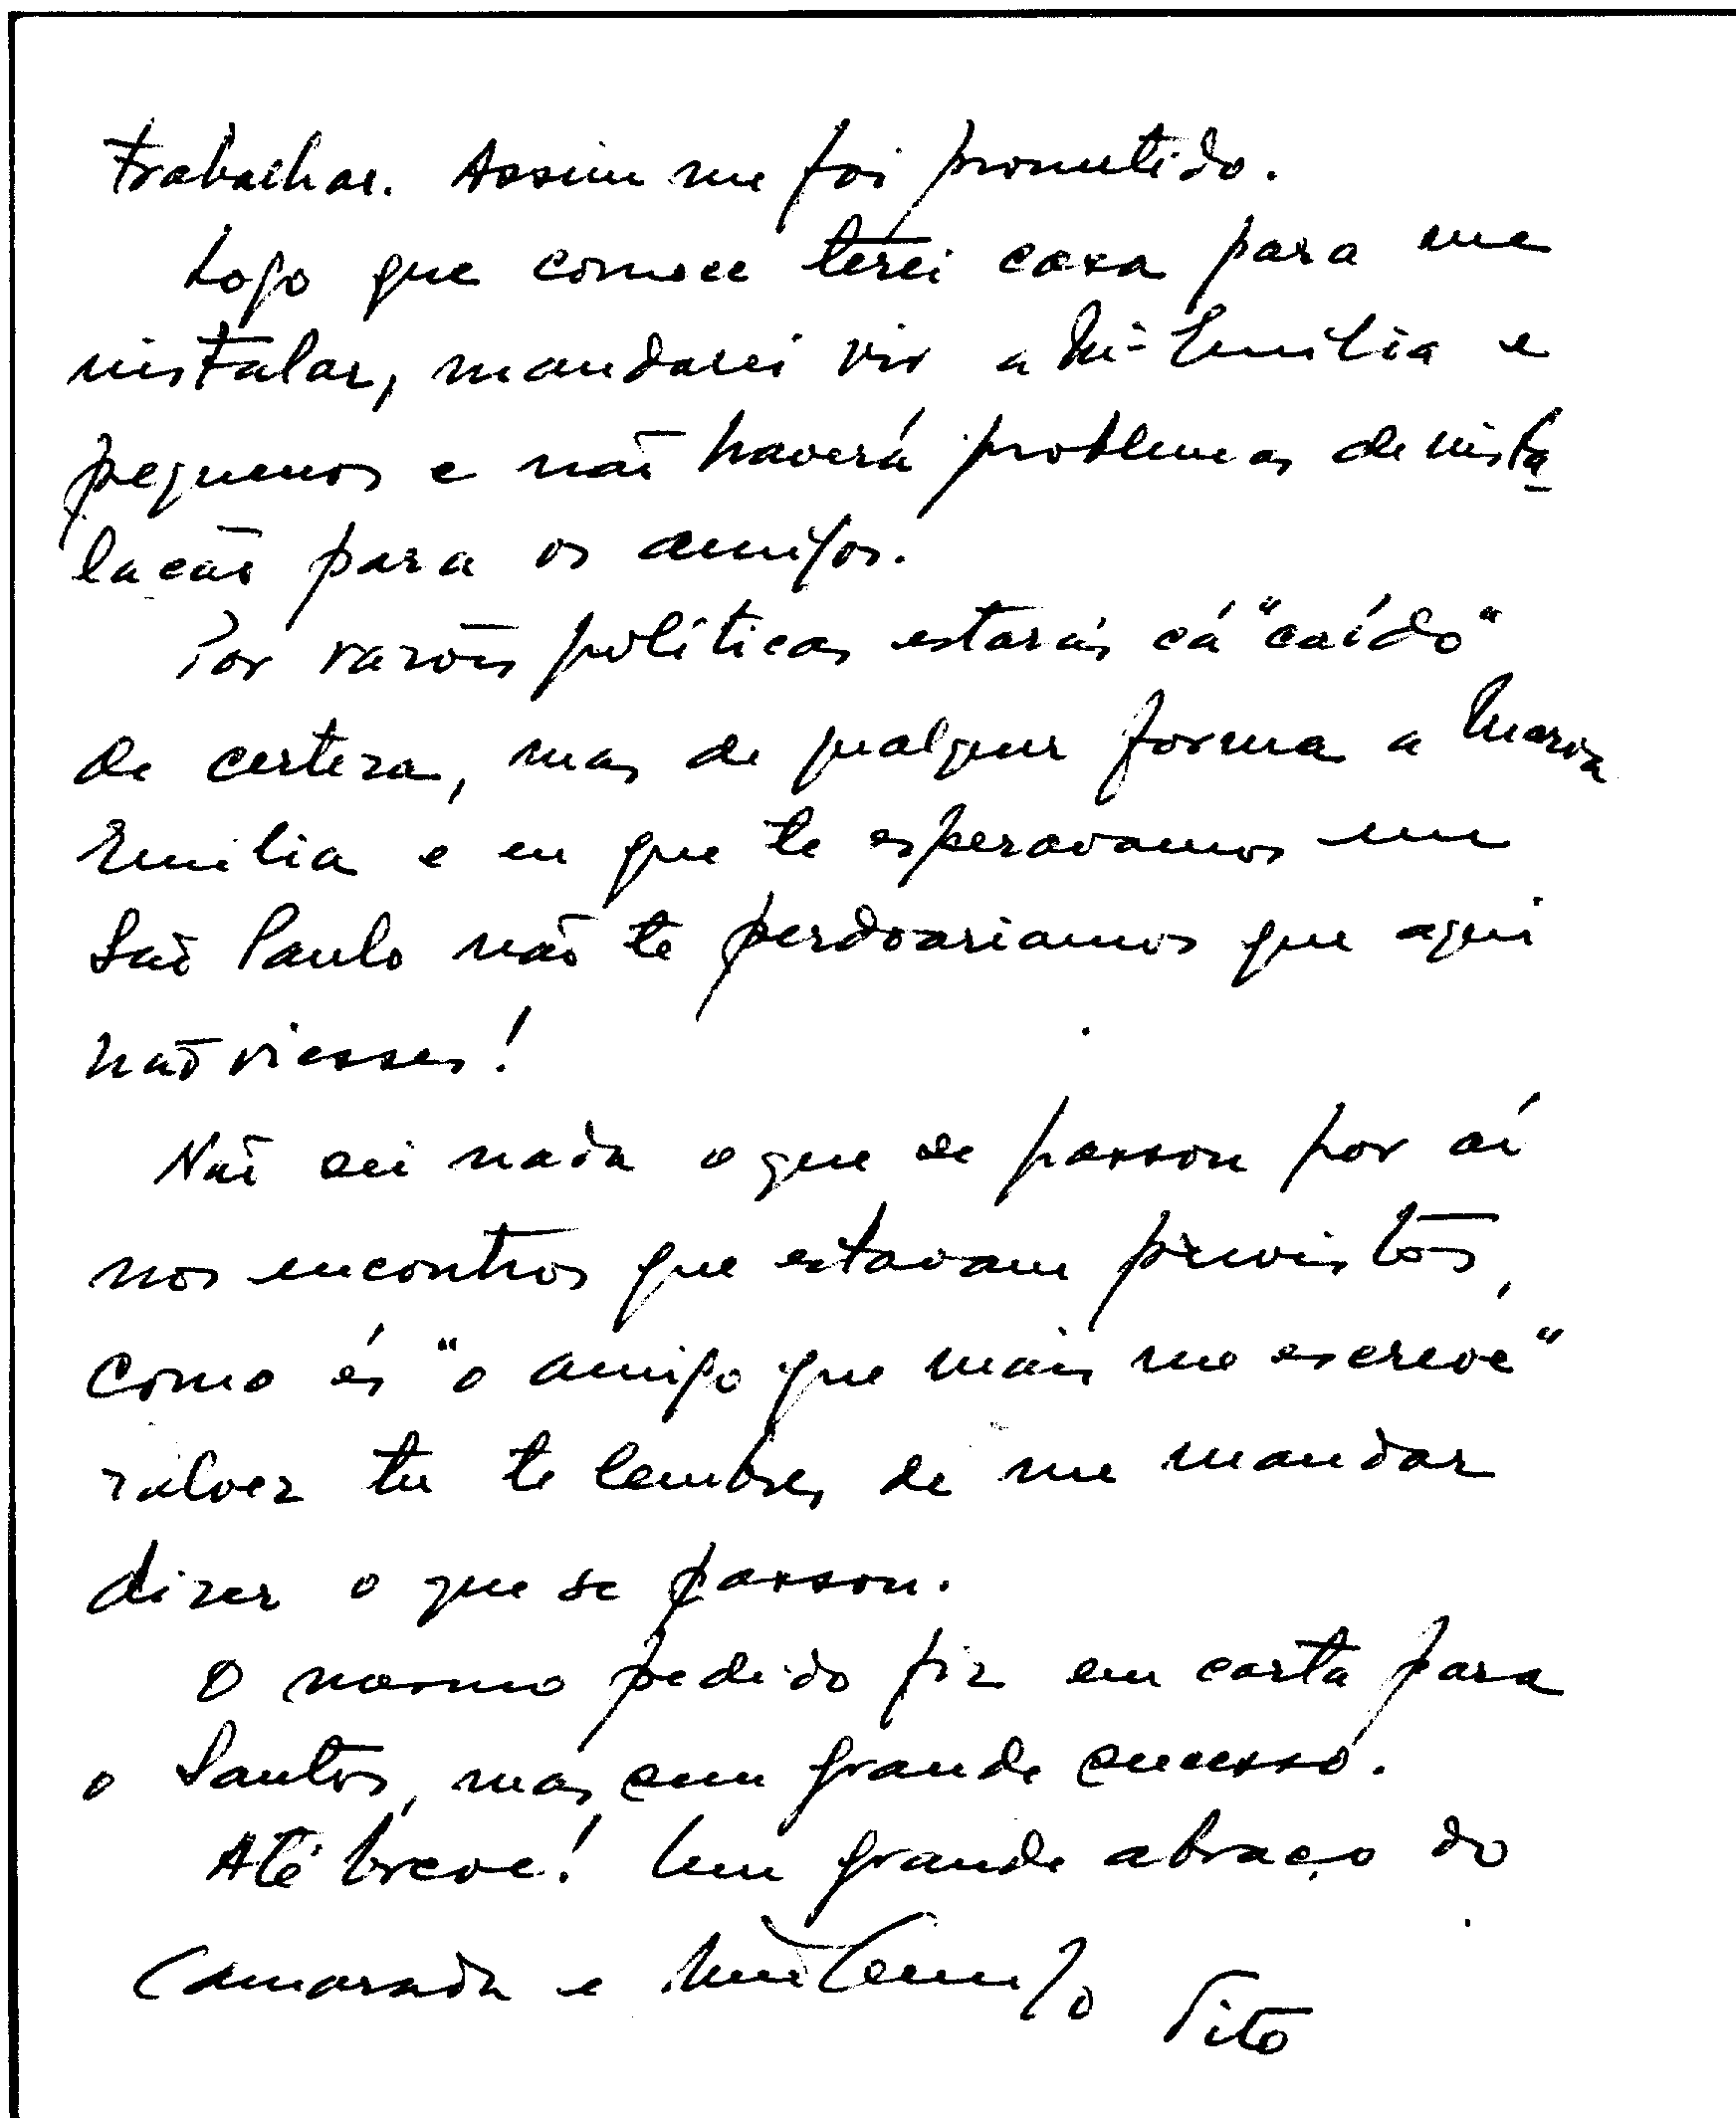 trabalhar. Assim me foi prometido.
Logo que comece terei casa para me
instalar, mandarei vir a Mª Emilia e
pequenos e não haverá problemas de insta
lação para os amigos.
Por razões políticas estarás cá "caído"
de certeza, mas de qualquer forma a Maria
Emilia e eu que te esperavamos em
São Paulo não te perdoariamos que aqui
não viesses!
Não sei nada o que se passou por aí
nos encontros que estavam previstos,
como és "o amigo que mais me escreve"
talvez tu te lembres de me mandar
dizer o que se passou.
O mesmo pedido fiz em carta para
o Santos, mas sem grande sucesso.
Até breve! Um grande abraço do
Camarada e Tito